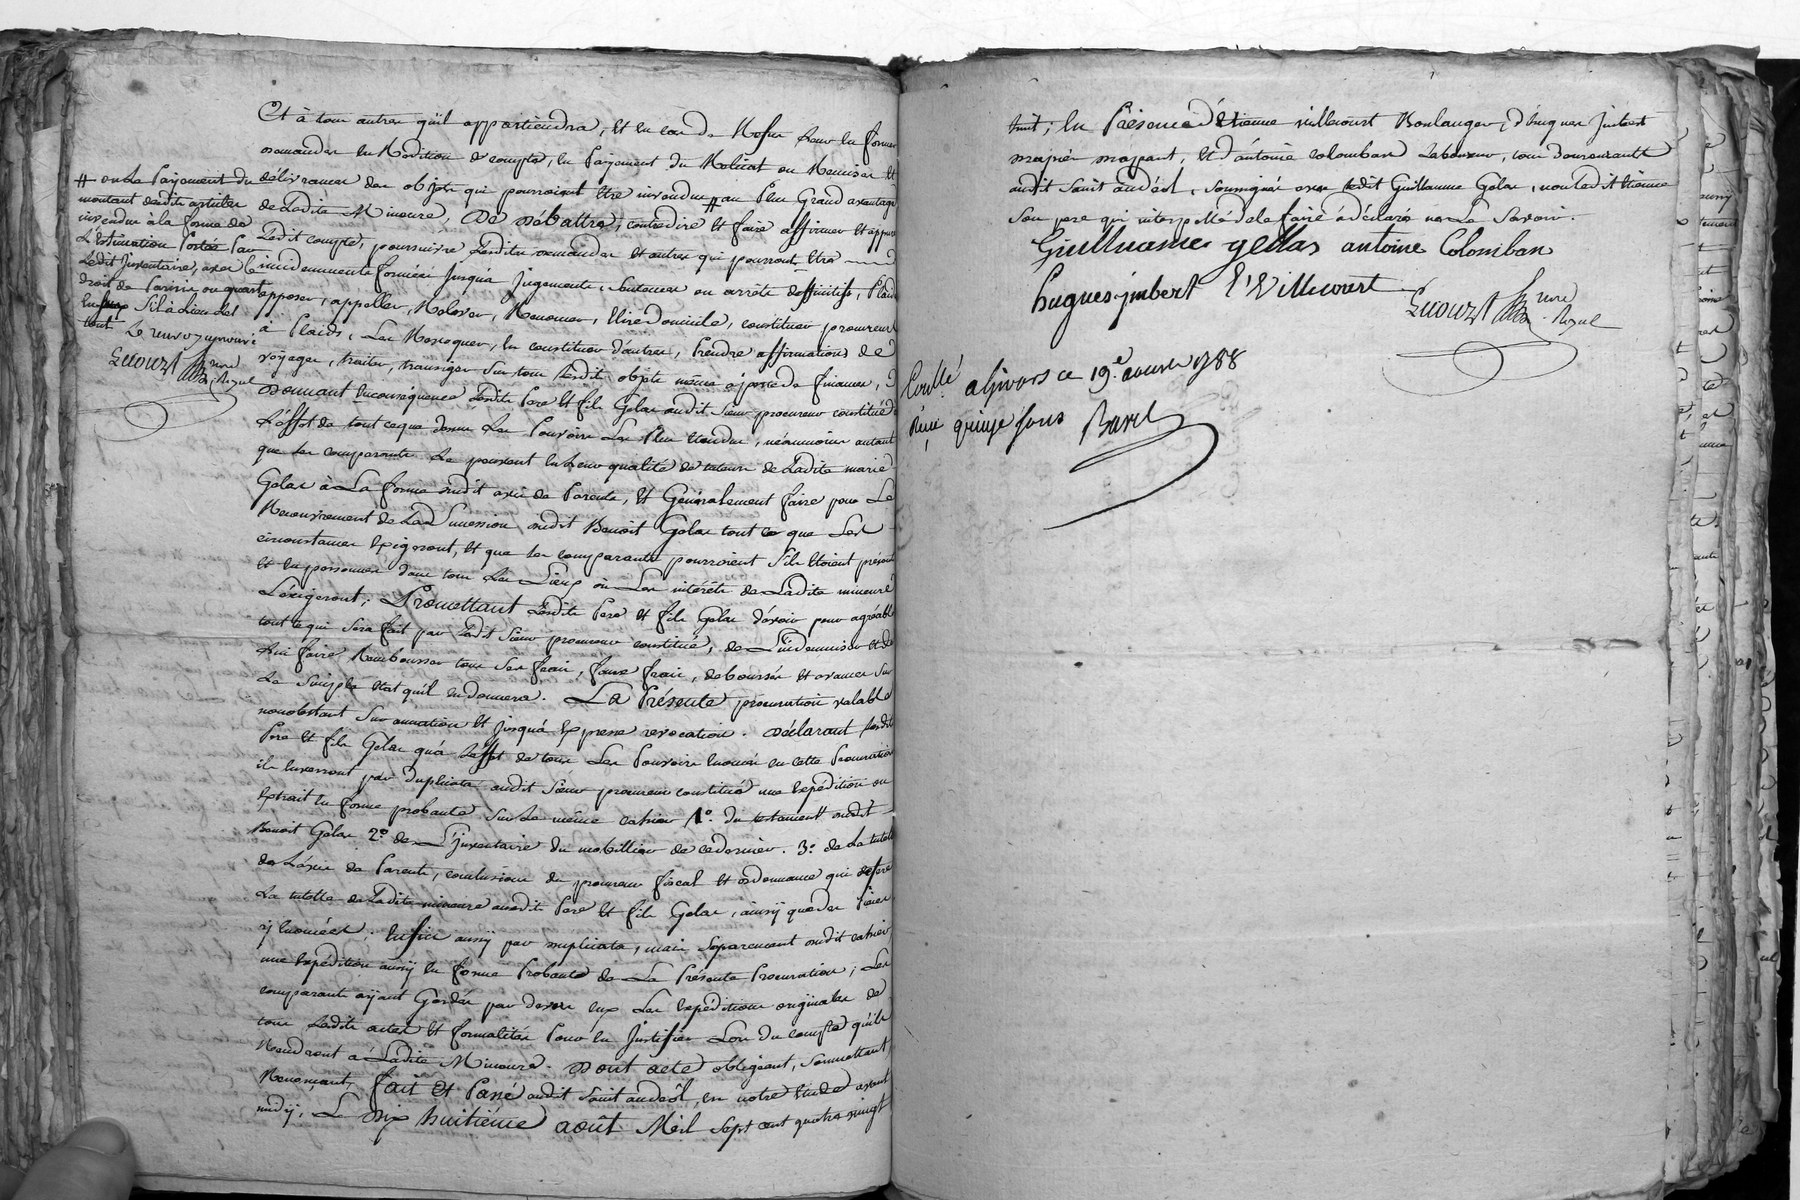 Et à tous autres qu'il appartiendra, Et en cas de Refus Leur en former
demander En Reddition de compte, En Payement du Relicat ou Remise Et
délivrance des objets qui pourroient Etre invendus # au Plus Grand avantage
de Ladite Mineure, De Débattre, contredire Et faire affirmer Et appurer
Ledit compte, poursuivre Lesdites demandes Et autres qui pourront Etre
incidemment formées Jusqu'à Jugements, Sentences ou arrêts deffinitifs, Plaider
opposer, appeller, Relever, Renoncer, Elire domicile, constituer procureurs
à Plaids, Les Revoquer, En constituer d'autres, Prendre affirmations de
voyages, traiter, transiger Sur tous Lesdits objets même à pose de finances,
donnant En conséquence Lesdits Pere Et fils Gelas audit Sieur procureur constitué
L'effet de tout ce que dessus Les Pouvoirs Les Plus Etendus, néanmoins autant
que les comparants Le peuvent En Leur qualité de tuteurs de Ladite marie
Gelas à La forme dudit avis de Parents, Et Généralement faire pour Le
Recouvrement de Lad. Succession dudit Benoit Gelas tout ce que Les
circonstances Exigeront, Et que les comparants pourroient S'ils Etoient présents
Et En personnes dans tous Les Lieux où Les intérêts de Ladite mineure
L'exigeront; Promettant Lesdits Pere Et fils Gelas d'avoir pour agréable
tout ce qui Sera fait par Ledit Sieur procureur constitué, de L'indemniser Et de
Lui faire Rembourser tous Ses frais, faux frais, deboursés Et avances Sur
Le Simple Etat qu'il En donnera. La Présente procuration valable
nonobstant Surannation Et Jusqu'à Expresse revocation. Déclarant Lesdits
Pere Et fils Gelas qu'à L'effet de tous Les Pouvoirs Enoncés En cette Procuration
ils Enverront par duplicata audit Sieur procureur constitué une Expédition ou
Extrait En forme probante Sur Le même cahier 1°. du testament dudit
Benoit Gelas 2°. de L'Inventaire du mobillier de ce dernier. 3°. de La tutelle
de L'avis de Parents, conclusions du procureur fiscal Et ordonnance qui defere
La tutelle de Ladite mineure audit Pere Et fils Gelas, ainsy que des Pieces
y Enoncées; Enfin aussy par duplicata, mais Separement dudit cahier
une Expédition aussy En forme Probante de La Présente Procuration; Les
comparants ayant Gardés par devers Eux Les Expéditions originales de
tous Lesdits actes Et formalités Pour En Justifier Lors du compte qu'ils
Rendront à Ladite Mineure. Dont acte obligeant, Soumettant
Renonçant, fait Et Passé audit Saint andéol, En notre Etude avant
midy, Le Dix huitiéme août Mil Sept cent quatre vingt
# ou Le Payement du
montant desdits articles
invendus à la forme de
L'Estimation Portée Par
Ledit Inventaire, avec Le
droit de Parisis ou quart
En Sus S'il à Lieu des
tout Le renvoy approuvé
Guouzt Nre Royal
huit; En Présence d'Etienne villecourt Boulanger, d'hugues Imbert
maçon, Et d'antoine colomban Laboureur, tous demeurants
audit Saint andéol, Soussignés avec Ledit Guillaume Gelas, non Ledit Etienne
Son pere qui interpellé de le faire à déclaré ne Le Savoir.
Guilluames gellas antoine Colomban
hugues jmbert E Villecourt
Guouzt Nre Royal
Con.llé a Givors ce 19.e aoust 1788
Reçu quinze sous Barel